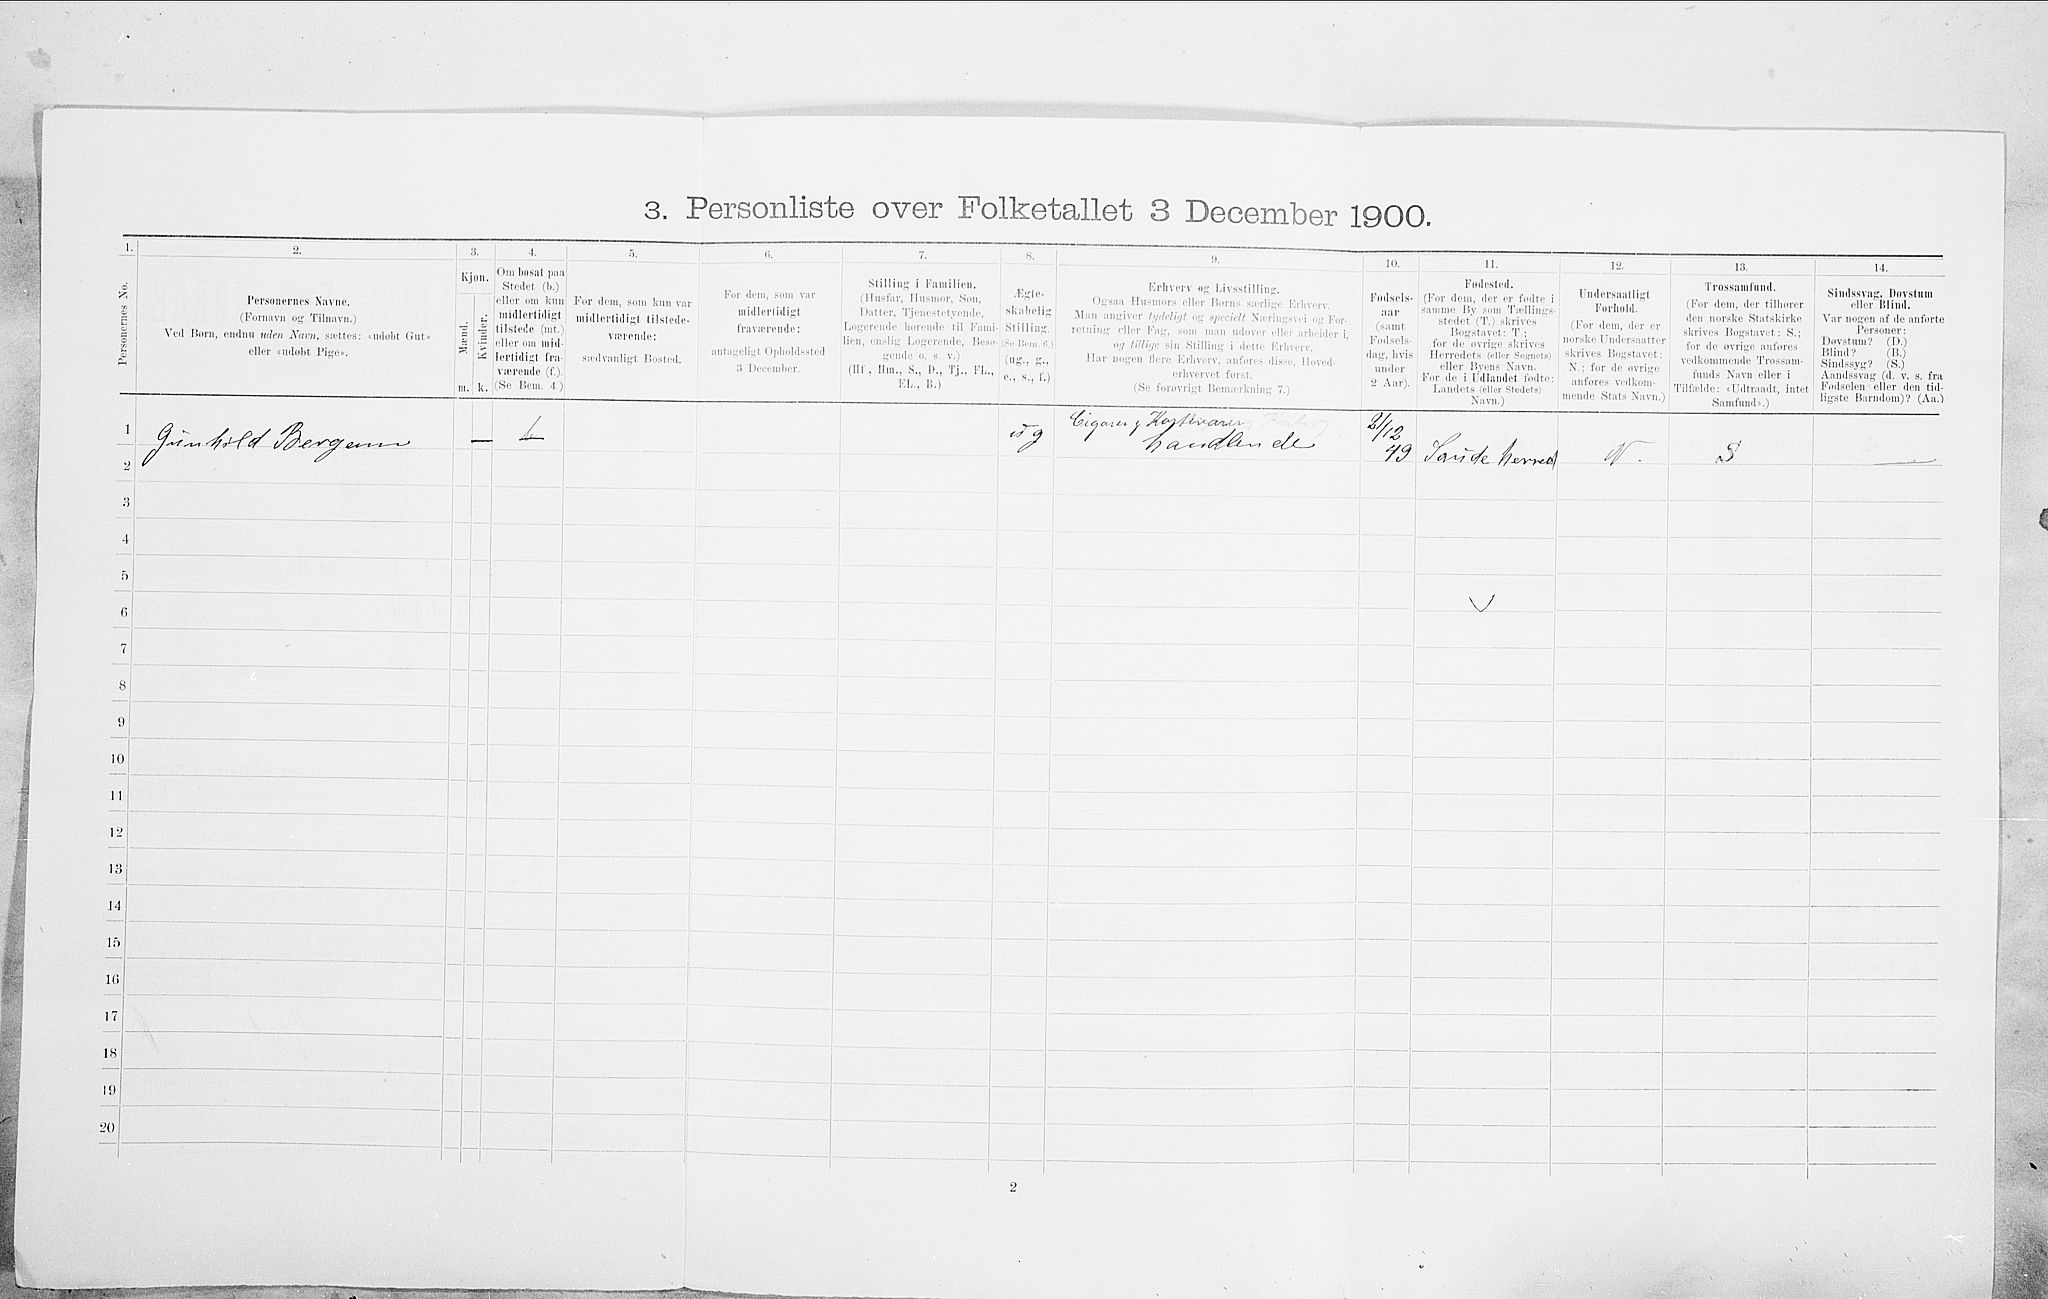 3. Personliste over Folketallet 3 December 1900.
1. 2. 3. 4. 5. 6. 7. 8. 9. 10. 11. 12. 13. 14.
Personernes No.
Personernes Navne.
(Fornavn og Tilnavn.)
Ved Børn, endnu uden Navn, sættes: «udøbt Gut»
eller «udøbt Pige».
Kjøn.
Mænd.
Kvinder.
m. k.
Om bosat paa
Stedet (b.)
eller om kun
midlertidigt
tilstede (mt.)
eller om mid-
lertidigt fra-
værende (f.).
(Se Bem. 4.)
For dem, som kun var
midlertidigt tilstede-
værende:
sædvanligt Bosted.
For dem, som var
midlertidigt
fraværende:
antageligt Opholdssted
3 December.
Stilling i Familien.
(Husfar, Husmor, Søn,
Datter, Tjenestetyende,
Logerende hørende til Fami-
lien, enslig Logerende, Besø-
gende o. s. v.)
(Hf., Hm., S., D., Tj., FL.,
EL., B.)
Ægte-
skabelig
Stilling.
(Se Bem. 6.)
(ug., g.,
e., s., f.)
Erhverv og Livsstilling.
Ogsaa Husmors eller Børns særlige Erhverv.
Man angiver tydeligt og specielt Næringsvei og For-
retning eller Fag, som man udøver eller arbeider i,
og tillige sin Stilling i dette Erhverv.
Har nogen flere Erhverv, anføres disse, Hoved-
erhvervet først.
(Se forøvrigt Bemærkning 7.)
Fødsels-
aar
(samt
Fødsels-
dag, hvis
under
2 Aar).
Fødested.
(For dem, der er fødte i
samme By som Tællings-
stedet (T.) skrives
Bogstavet: T;
for de øvrige skrives
Herredets (eller Sognets)
eller Byens Navn.
For de i Udlandet fødte:
Landets (eller Stedets)
Navn.)
Undersaatligt
Forhold.
(For dem, der er
norske Undersaatter
skrives Bogstavet:
N.; for de øvrige
anføres vedkom-
mende Stats Navn.)
Trossamfund.
(For dem, der tilhører
den norske Statskirke
skrives Bogstavet: S.;
for de øvrige anføres
vedkommende Trossam-
funds Navn eller i
Tilfælde: «Udtraadt, intet
Samfund».)
Sindssvag, Døvstum
eller Blind.
Var nogen af de anførte
Personer:
Døvstum? (D.)
Blind? (B.)
Sindssyg? (S.)
Aandssvag (d. v. s. fra
Fødselen eller den tid-
ligste Barndom)? (Aa.)
1 Gunhild Bergan — b ug Cigarer g Kortevarer handlende 2/12 49 Saude herred N. S —
2
3
4
5
6
7
8
9
10
11
12
13
14
15
16
17
18
19
20
2